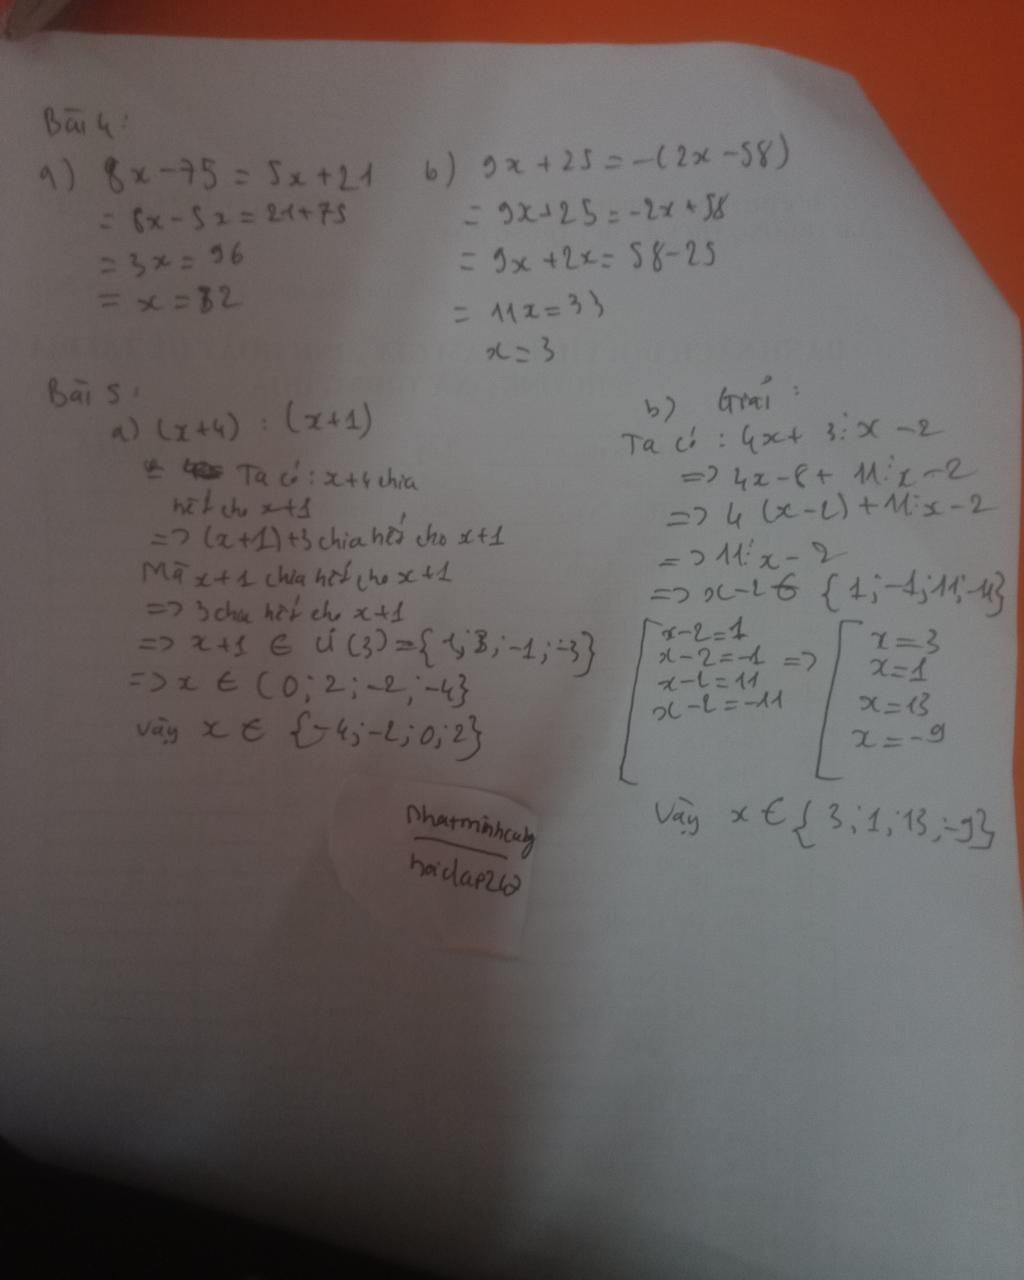 Bài 4:
a) 8x - 75 = 5x + 21
= 8x - 5x = 21 + 75
= 3x = 96
= x = 32
b) 9x + 25 = -(2x - 58)
= 9x + 25 = -2x + 58
= 9x + 2x = 58 - 25
= 11x = 33
x = 3
Bài 5:
a) (x+4) : (x+1)
Ta có : x+4 chia
hết cho x+1
=> (x+1)+3 chia hết cho x+1
Mà x+1 chia hết cho x+1
=> 3 chia hết cho x+1
=> x+1 ∈ Ư(3) = {1; 3; -1; -3}
=> x ∈ (0; 2; -2; -4}
Vậy x ∈ {-4; -2; 0; 2}
b) Giải :
Ta có : 4x + 3 ⋮ x - 2
=> 4x - 8 + 11 ⋮ x - 2
=> 4 (x - 2) + 11 ⋮ x - 2
=> 11 ⋮ x - 2
=> x - 2 ∈ {1; -1; 11; -11}
x - 2 = 1
x - 2 = -1 =>
x - 2 = 11
x - 2 = -11
x = 3
x = 1
x = 13
x = -9
Vậy x ∈ {3; 1; 13; -9}
hoidap247